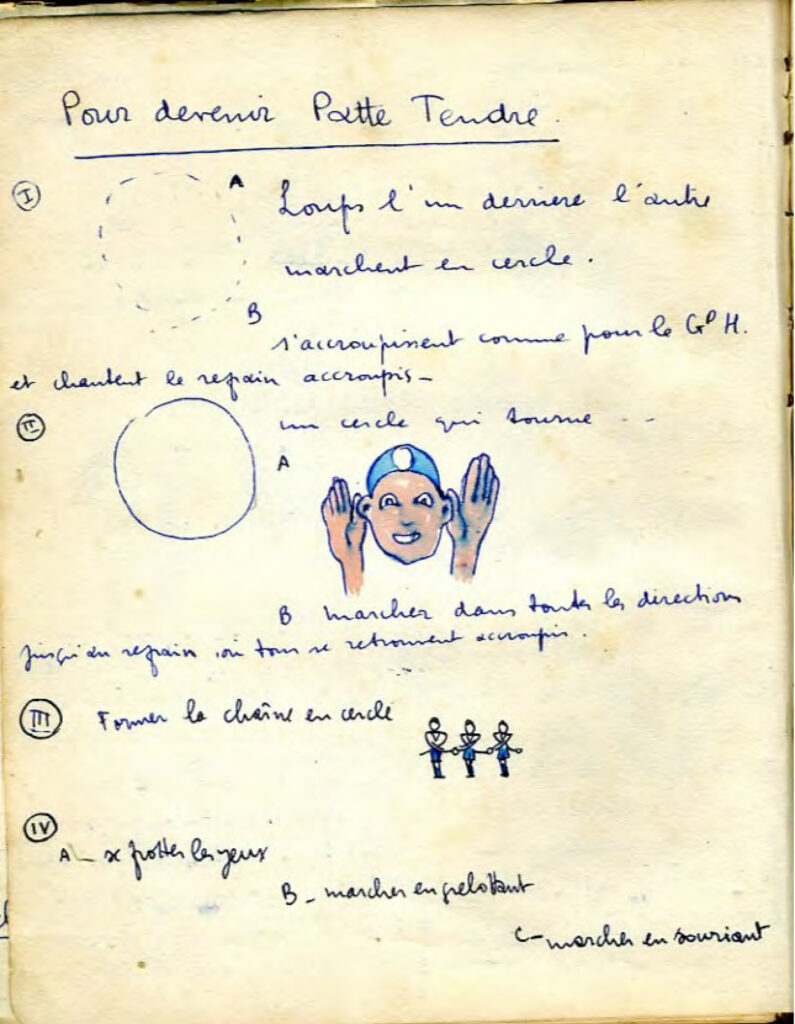 Pour devenir Patte Tendre.
I
A Loups l'un derriere l'autre
marchent en cercle.
B s'accroupissent comme pour le Gd H.
et chantent le refrain accroupis –
II un cercle qui tourne ...
A
B marcher dans toutes les directions
jusqu'au refrain où tous se retrouvent accroupis.
III Former la chaîne en cercle
IV
A – se frotter les yeux
B – marcher en grelottant
C – marcher en souriant